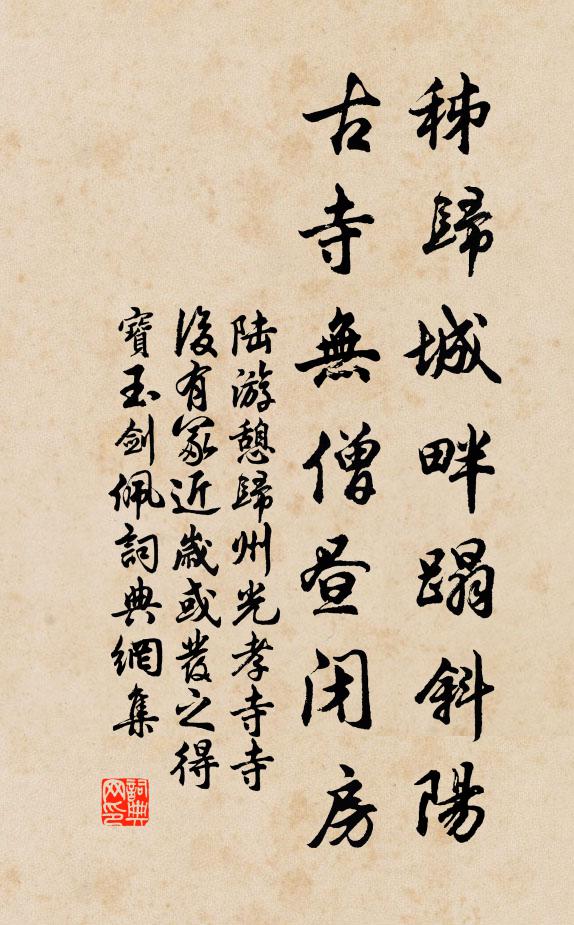 秭歸城畔蹋斜陽
古寺無僧晝閉房
陆游憩歸州光孝寺寺
後有冢近歲或發之得
寶玉劍佩詞典網集
詞典网印